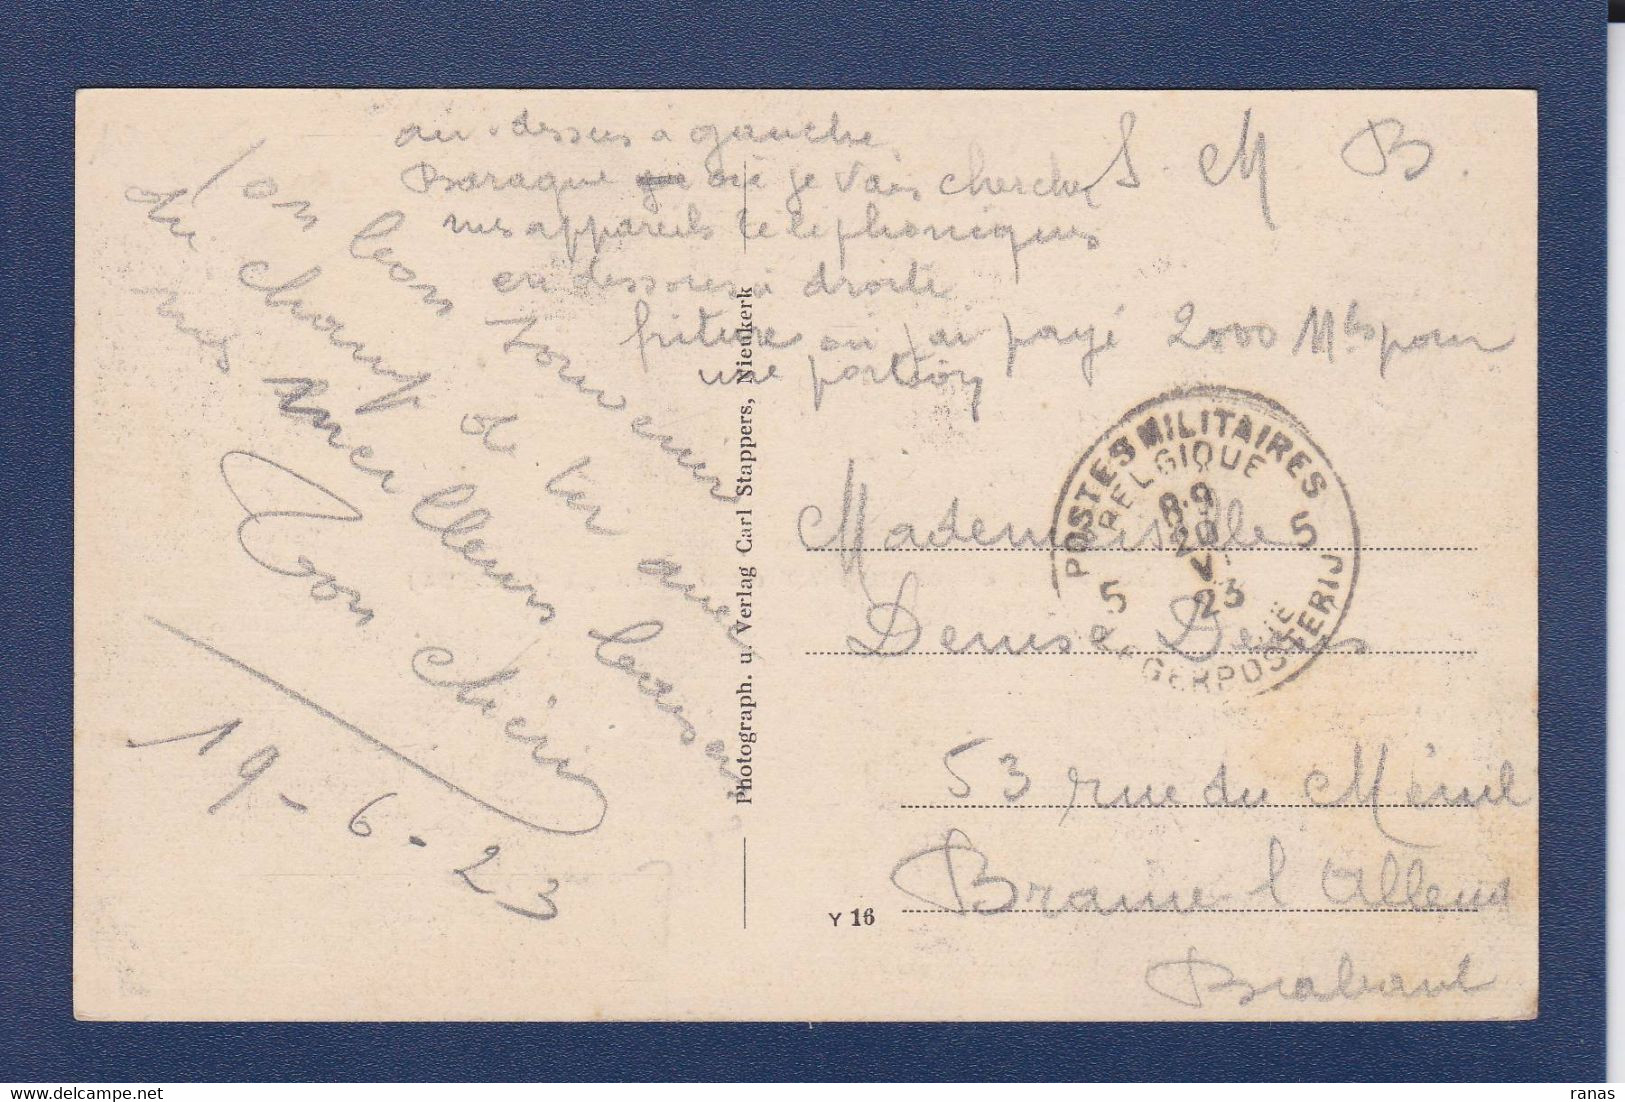 au-dessus à gauche
Baraque où je vais chercher
mes appareils telephoniques
en dessous à droite
friture où j'ai payé 2000 Mks pour
une portion
S. M B.
un bon souvenir
du champ de tir avec
mes meilleurs baisers
Ton chéri
19-6-23
Photograph. u. Verlag Carl Stappers, Nieukerk
POSTES MILITAIRES
BELGIQUE
8-9
20
V
23
5 5
LEGERPOSTERIJ
Mademoiselle
Denise Denis
53 rue du Ménil
Braine-l'Alleud
Brabant
Y 16
ranas